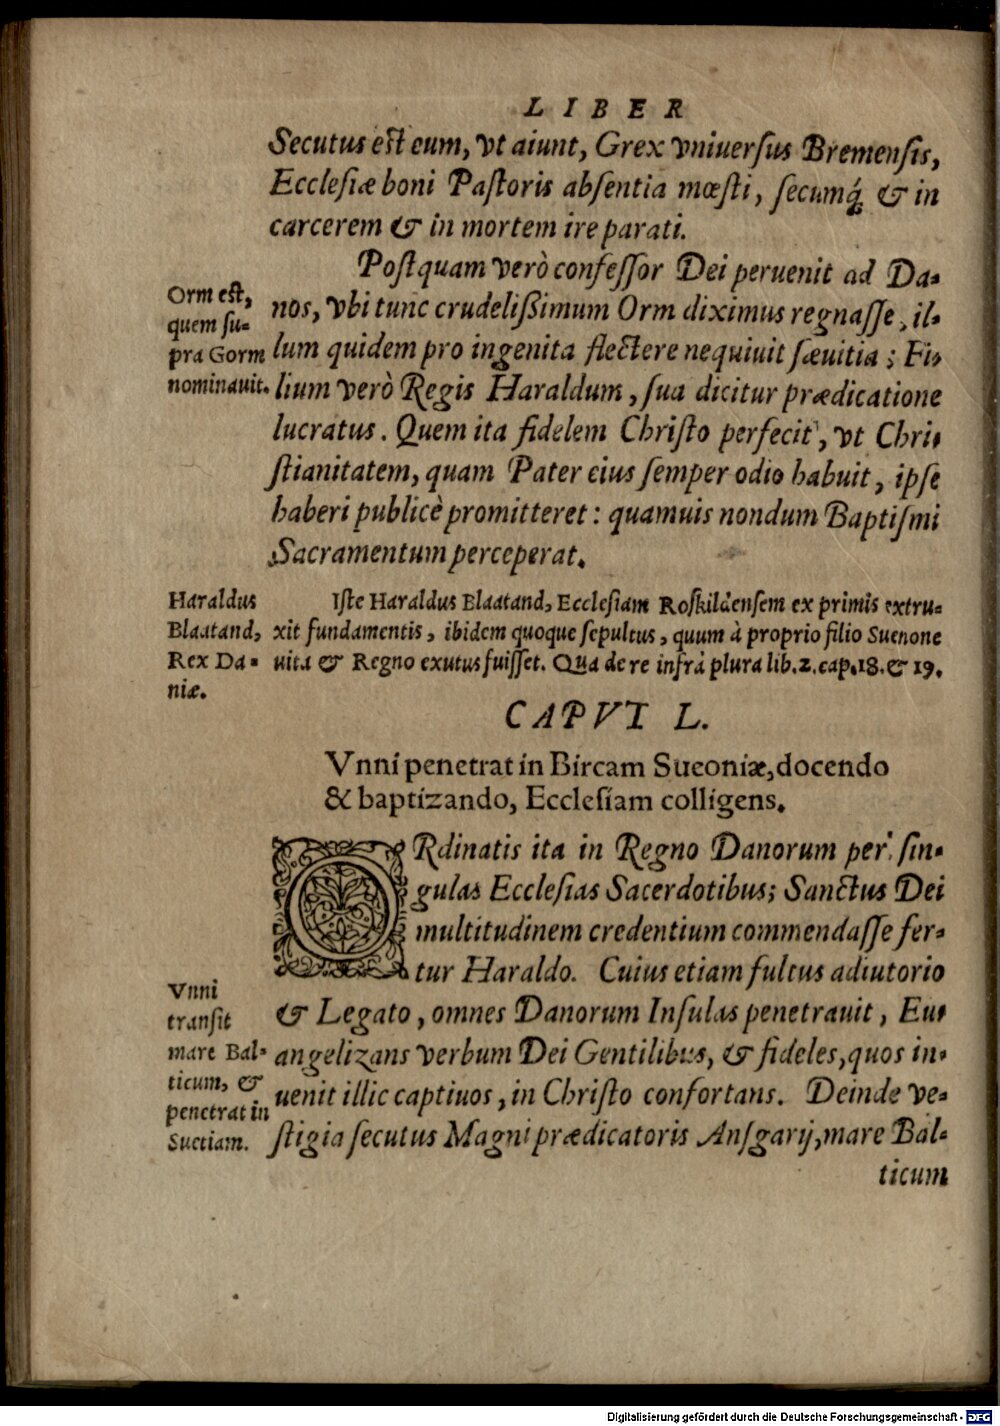 LIBER
Secutus est eum, vt aiunt, Grex vniuersus Bremensis,
Ecclesiæ boni Pastoris absentia mœsti, secumq́; & in
carcerem & in mortem ire parati.
Postquam verò confessor Dei peruenit ad Da-
nos, vbi tunc crudelißimum Orm diximus regnasse, il-
lum quidem pro ingenita flectere nequiuit sæuitia; Fi-
lium verò Regis Haraldum, sua dicitur prædicatione
lucratus. Quem ita fidelem Christo perfecit, vt Chri-
stianitatem, quam Pater eius semper odio habuit, ipse
haberi publicè promitteret: quamuis nondum Baptismi
Sacramentum perceperat.
Orm est,
quem su-
pra Gorm
nominauit.
Iste Haraldus Blaatand, Ecclesiam Roskildensem ex primis extru-
xit fundamentis, ibidem quoque sepultus, quum à proprio filio Suenone
uita & Regno exutus fuisset. Qua de re infrà plura lib. 2. cap. 18. & 19.
Haraldus
Blaatand,
Rex Da-
niæ.
CAPVT L.
Vnni penetrat in Bircam Sueoniæ, docendo
& baptizando, Ecclesiam colligens.
ORdinatis ita in Regno Danorum per sin-
gulas Ecclesias Sacerdotibus; Sanctus Dei
multitudinem credentium commendasse fer-
tur Haraldo. Cuius etiam fultus adiutorio
& Legato, omnes Danorum Insulas penetrauit, Eu-
angelizans verbum Dei Gentilibus, & fideles, quos in-
uenit illic captiuos, in Christo confortans. Deinde ve-
stigia secutus Magni prædicatoris Ansgarij, mare Bal-
ticum
Vnni
transit
mare Bal-
ticum, &
penetrat in
Suetiam.
Digitalisierung gefördert durch die Deutsche Forschungsgemeinschaft - DFG